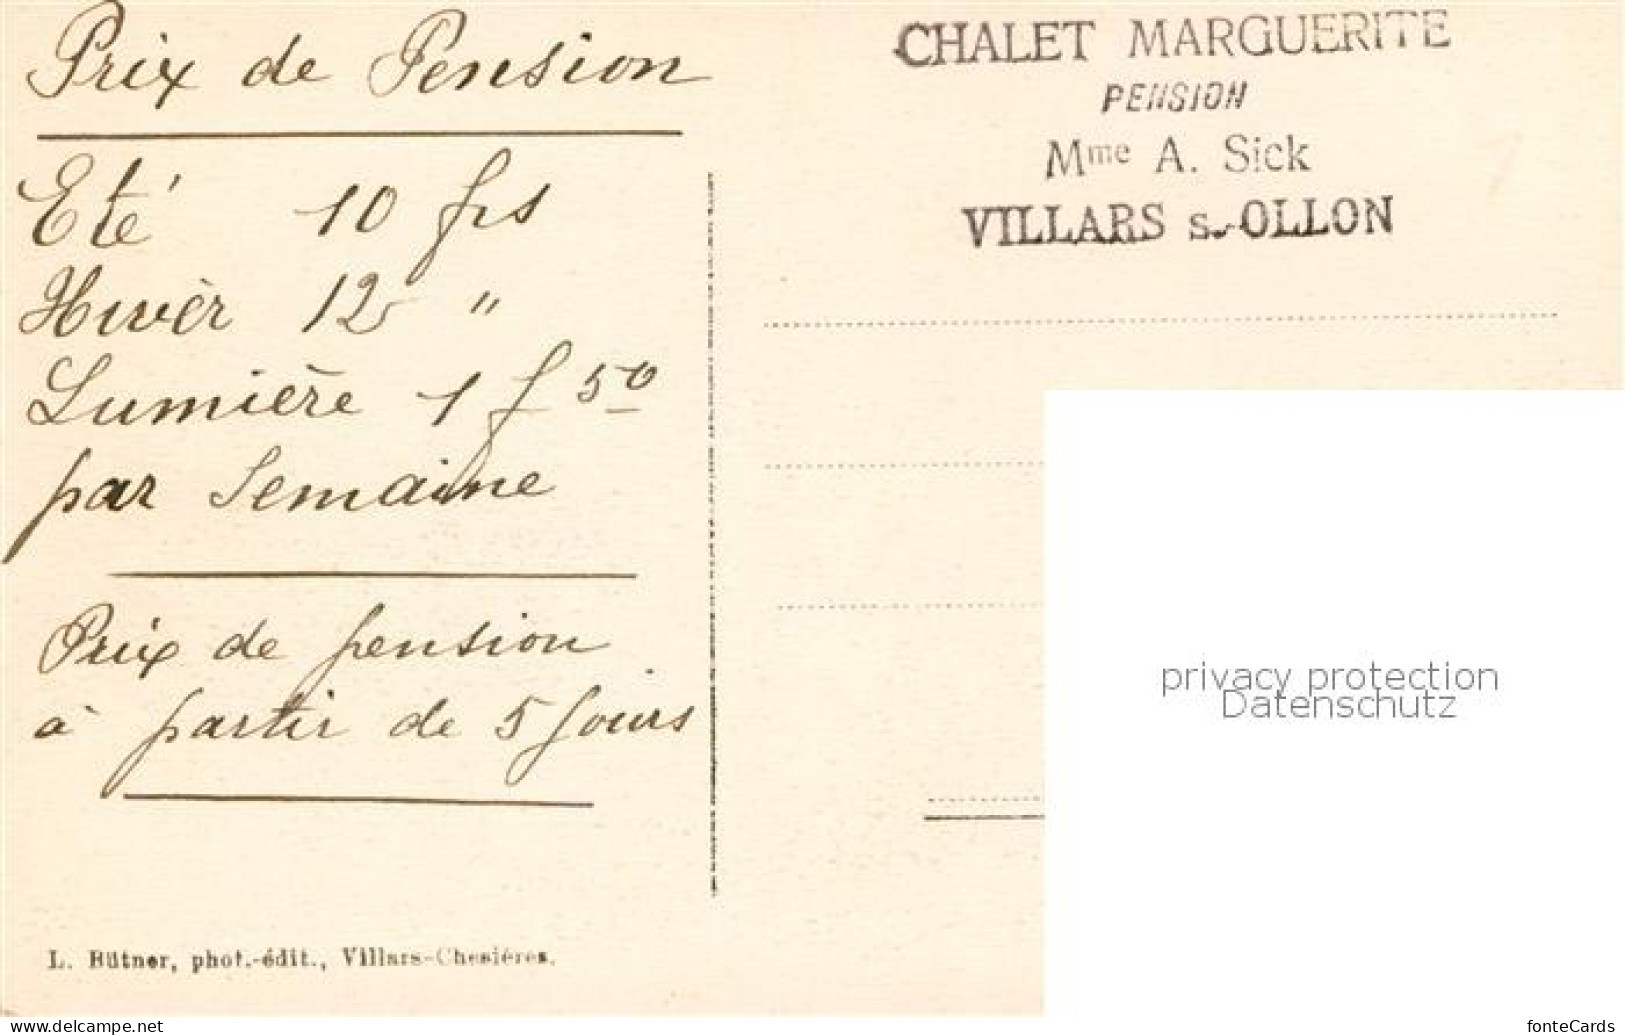 Prix de Pension
Eté 10 frs
Hivèr 12 "
Lumière 1 f 50
par Semaine
Prix de pension
à partir de 5 jours
L. Bütner, phot.-édit., Villars-Chesières.
CHALET MARGUERITE
PENSION
Mme A. Sick
VILLARS s.-OLLON
privacy protection
Datenschutz
www.delcampe.net
fonteCards